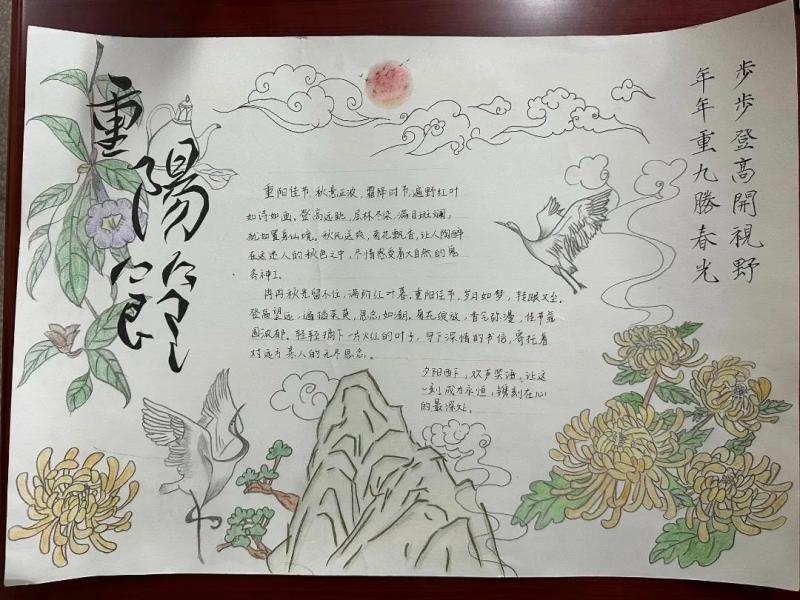 重陽節
步步登高開視野
年年重九勝春光
重阳佳节，秋意正浓，霜降时节，遍野红叶
如诗如画。登高远眺，层林尽染，满目斑斓，
犹如置身仙境。秋风送爽，菊花飘香，让人陶醉
在这迷人的秋色之中，尽情感受着大自然的鬼
斧神工。
冉冉秋光留不住，满阶红叶暮。重阳佳节，岁月如梦，转眼又至。
登高望远，遍插茱萸，思念如潮。菊花绽放，香气弥漫，佳节氛
围浓郁。轻轻摘下一片火红的叶子，写下深情的书信，寄托着
对远方亲人的无尽思念。
夕阳西下，欢声笑语，让这
一刻成为永恒，镌刻在心
的最深处。